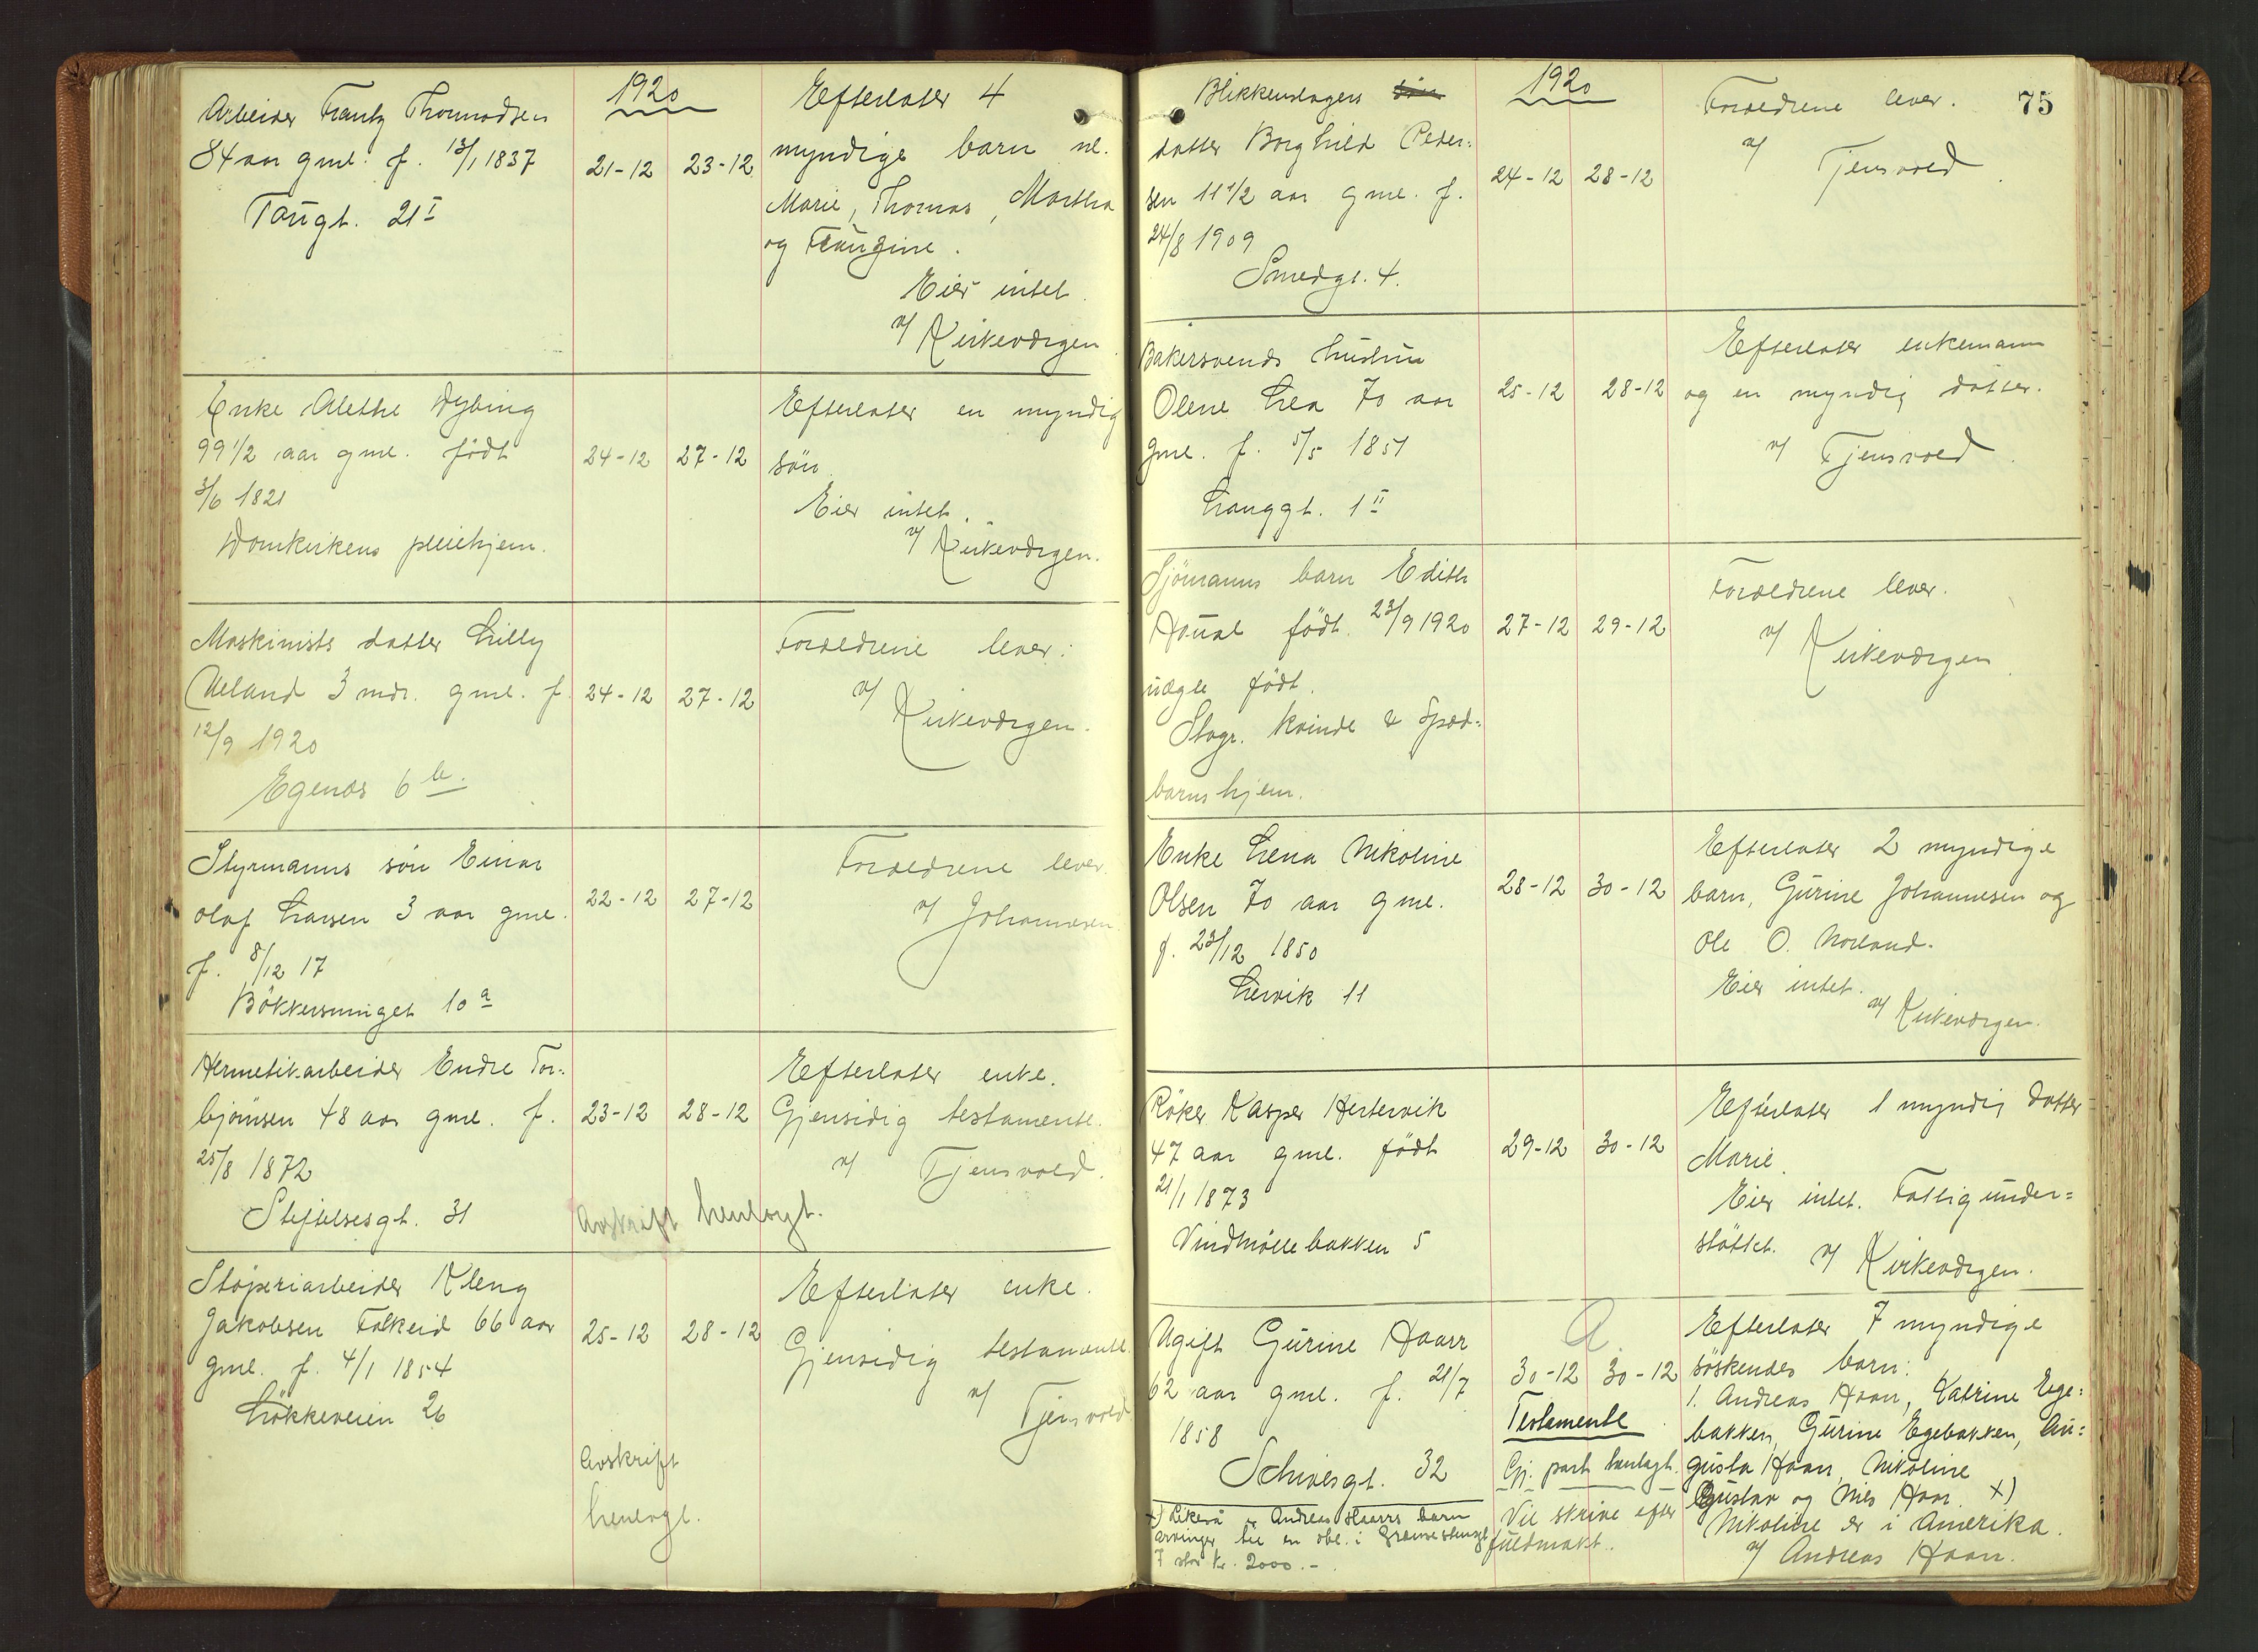 1920
Arbeider Frantz Thomadsen
84 aar gml. f. 13/1 1837
Taugt. 21 I
21-12 23-12
Efterlater 4
myndige barn nl.
Marie, Thomas, Martha
og
Eier intet.
v/ Kirkeværgen
Enke Alethe Dybing
99 1/2 aar gml. født
3/6 1821
Domkirkens pleiehjem.
24-12 27-12
Efterlater en myndig
sön.
Eier intet.
v/ Kirkeværgen.
Maskinists datter Lilly
Ueland 3 mdr. gml. f.
12/9 1920
Egenæs 6 b.
24-12 27-12
Forældrene lever.
v/ Kirkeværgen.
Styrmanns sön Einar
Olaf Larsen 3 aar gml.
f. 8/12 17
Bökkersmuget 10 a
22-12 27-12
Forældrene lever.
v/ Johannesen
Hermetikarbeider Endre Tor=
björnsen 48 aar gml. f.
25/8 1872
Stiftelsesgt. 31
23-12 28-12
Avskrift henlagt.
Efterlater enke.
Gjensidig testamente.
v/ Tjensvold.
Støperiarbeider Kleng
Jakobsen Falkeid 66 aar
gml. f. 4/1 1854
Løkkeveien 26
25-12 28-12
Avskrift
henlagt.
Efterlater enke.
Gjensidig testamente.
v/ Tjensvold
75
1920
Blikkenslagers
datter Borghild Peder=
sen 11 1/2 aar gml. f.
24/8 1909
Smedgt. 4.
24-12 28-12
Forældrene lever.
v/ Tjensvold
Bakersvends hustru
Olene Lea 70 aar
gml. f. 5/5 1851
Langgt. 1 II
25-12 28-12
Efterlater enkemann
og en myndig datter.
v/ Tjensvold
Sjömanns barn Edith
født 23/9 1920
uægte født.
Stvgr. Kvinde & Spæd=
barnshjem.
27-12 29-12
Forældrene lever.
v/ Kirkeværgen
Enke Lena Nikoline
Olsen 70 aar gml.
f. 23/12 1850
Lervik 11
28-12 30-12
Efterlater 2 myndige
barn, Gurine Johannesen og
Ole O. Norland.
Eier intet.
v/ Kirkeværgen.
Røker Kasper Hertervik
47 aar gml. født
21/1 1873
Vindmøllebakken 5
29-12 30-12
Efterlater 1 myndig datter
Marie.
Eier intet. Fattigunder=
støttet. v/ Kirkeværgen.
Ugift Gurine Haarr
62 aar gml. f. 21/7
1858
Schivesgt. 32
30-12 30-12
Testamente
Gj. part henlagt.
Vil skrive efter
fuldmakt.
Efterlater 7 myndige
søskendes barn:
1. Andreas Haarr, Katrine Ege=
bakken, Gurine Egebakken, Au=
gusta Haarr, Nikoline
Gustav og Nils Haarr. x)
Nikoline er i Amerika.
v/ Andreas Haarr.
x) Likesaa Andreas Haarrs barn
arvinger til en obl. i
7 stor kr. 2000.-